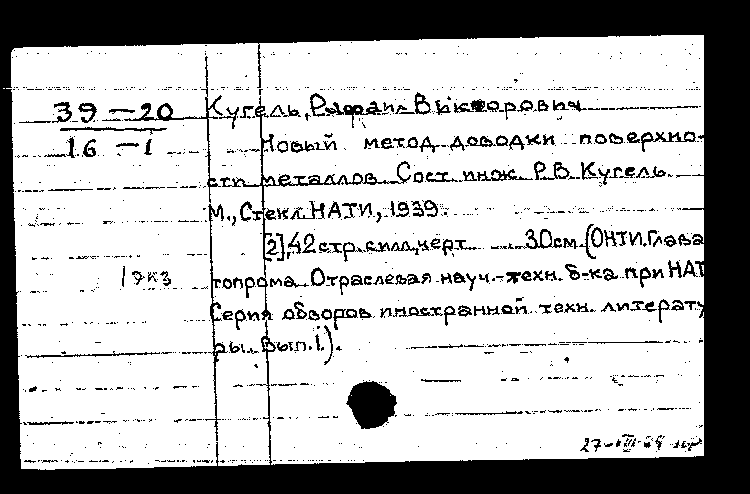 39-20
16-1
Кугель, Рафаил Викторович
Новый метод доводки поверхно-
сти металлов. Сост. инж. Р.В. Кугель.
М., Стекл. НАТИ, 1939.
[2], 42 стр. с илл., черт. 30см. (ОНТИ. Глава
топрома. Отраслевая науч.-техн. б-ка при НАТ
Серия обзоров иностранной техн. литерату
ры. Вып. 1).
1 экз
27-VIII-69